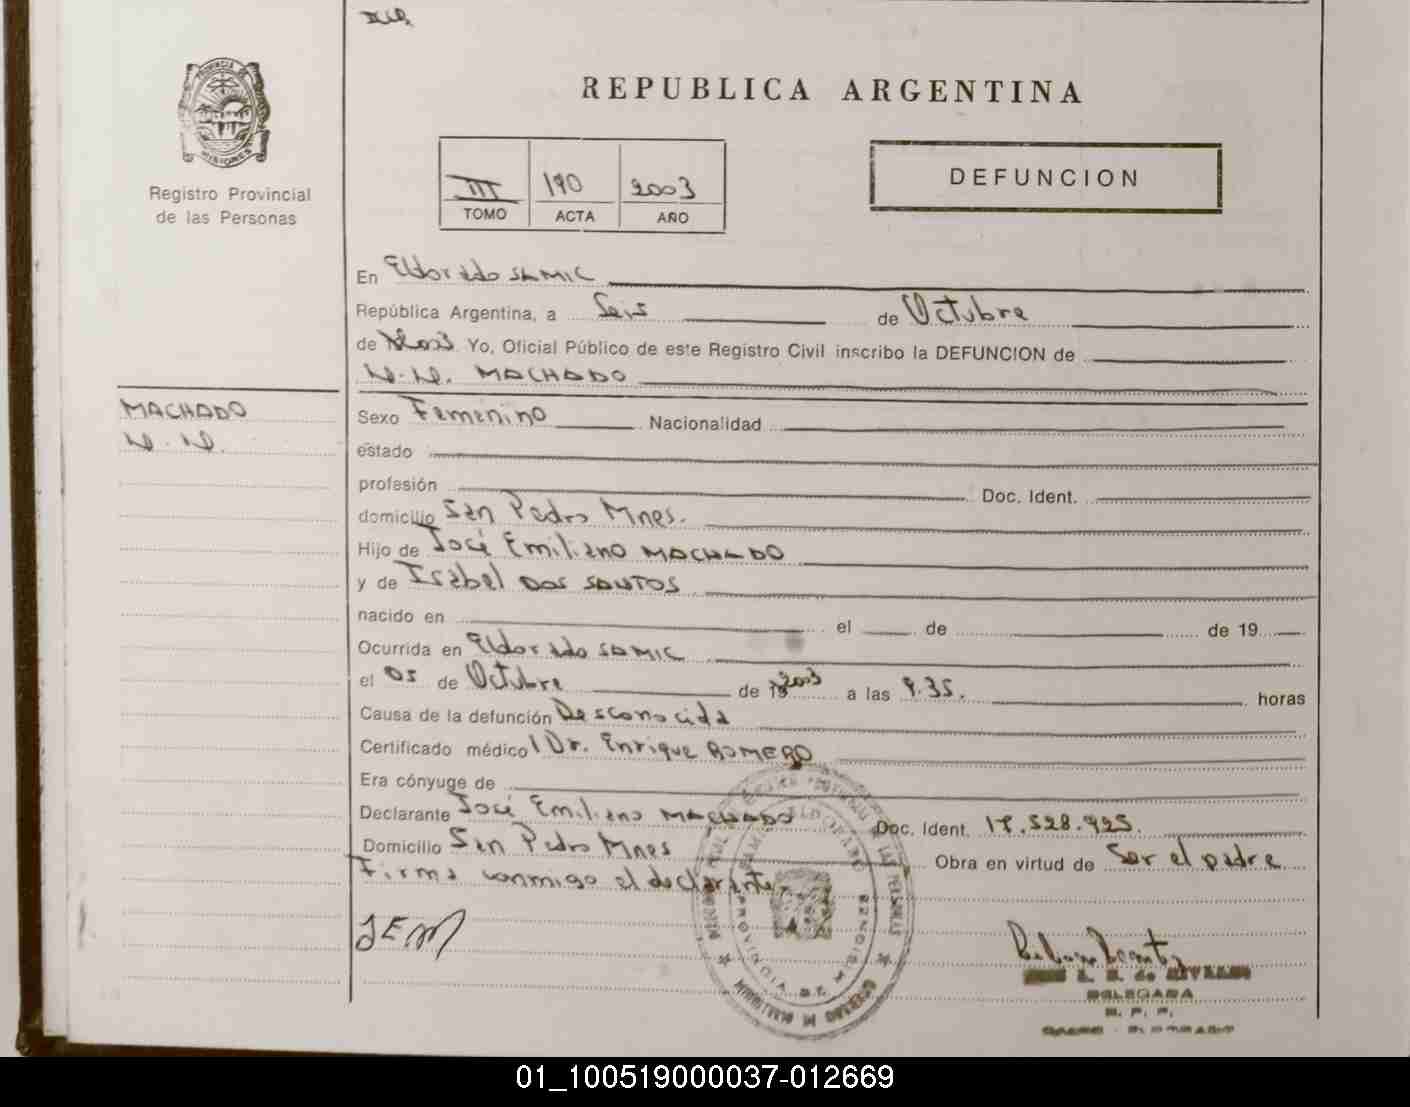 REPUBLICA ARGENTINA
PROVINCIA DE
MISIONES
Registro Provincial
de las Personas
III 190 2003
TOMO ACTA AÑO
DEFUNCION
En Eldorado SAMIC
República Argentina, a Seis de Octubre
de 2003 Yo, Oficial Público de este Registro Civil inscribo la DEFUNCION de
N.N. MACHADO
MACHADO
N.N.
Sexo Femenino Nacionalidad
estado
profesión Doc. Ident.
domicilio San Pedro Mnes.
Hijo de José Emiliano MACHADO
y de Isabel DOS SANTOS
nacido en el de de 19
Ocurrida en Eldorado SAMIC
el 05 de Octubre de 19 2003 a las 9.35. horas
Causa de la defunción Desconocida
Certificado médico Dr. Enrique ROMERO
Era cónyuge de
Declarante José Emiliano MACHADO Doc. Ident. 17.528.925.
Domicilio San Pedro Mnes Obra en virtud de Ser el padre
Firma conmigo el declarante.
JEM
PROVINCIA DE MISIONES
DELEGADA
R. P. P.
01_100519000037-012669